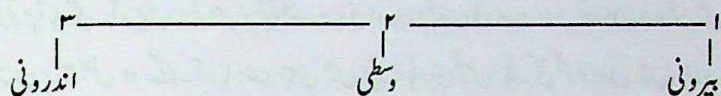 ۱ ۲ ۳
بیرونی وسطی اندرونی